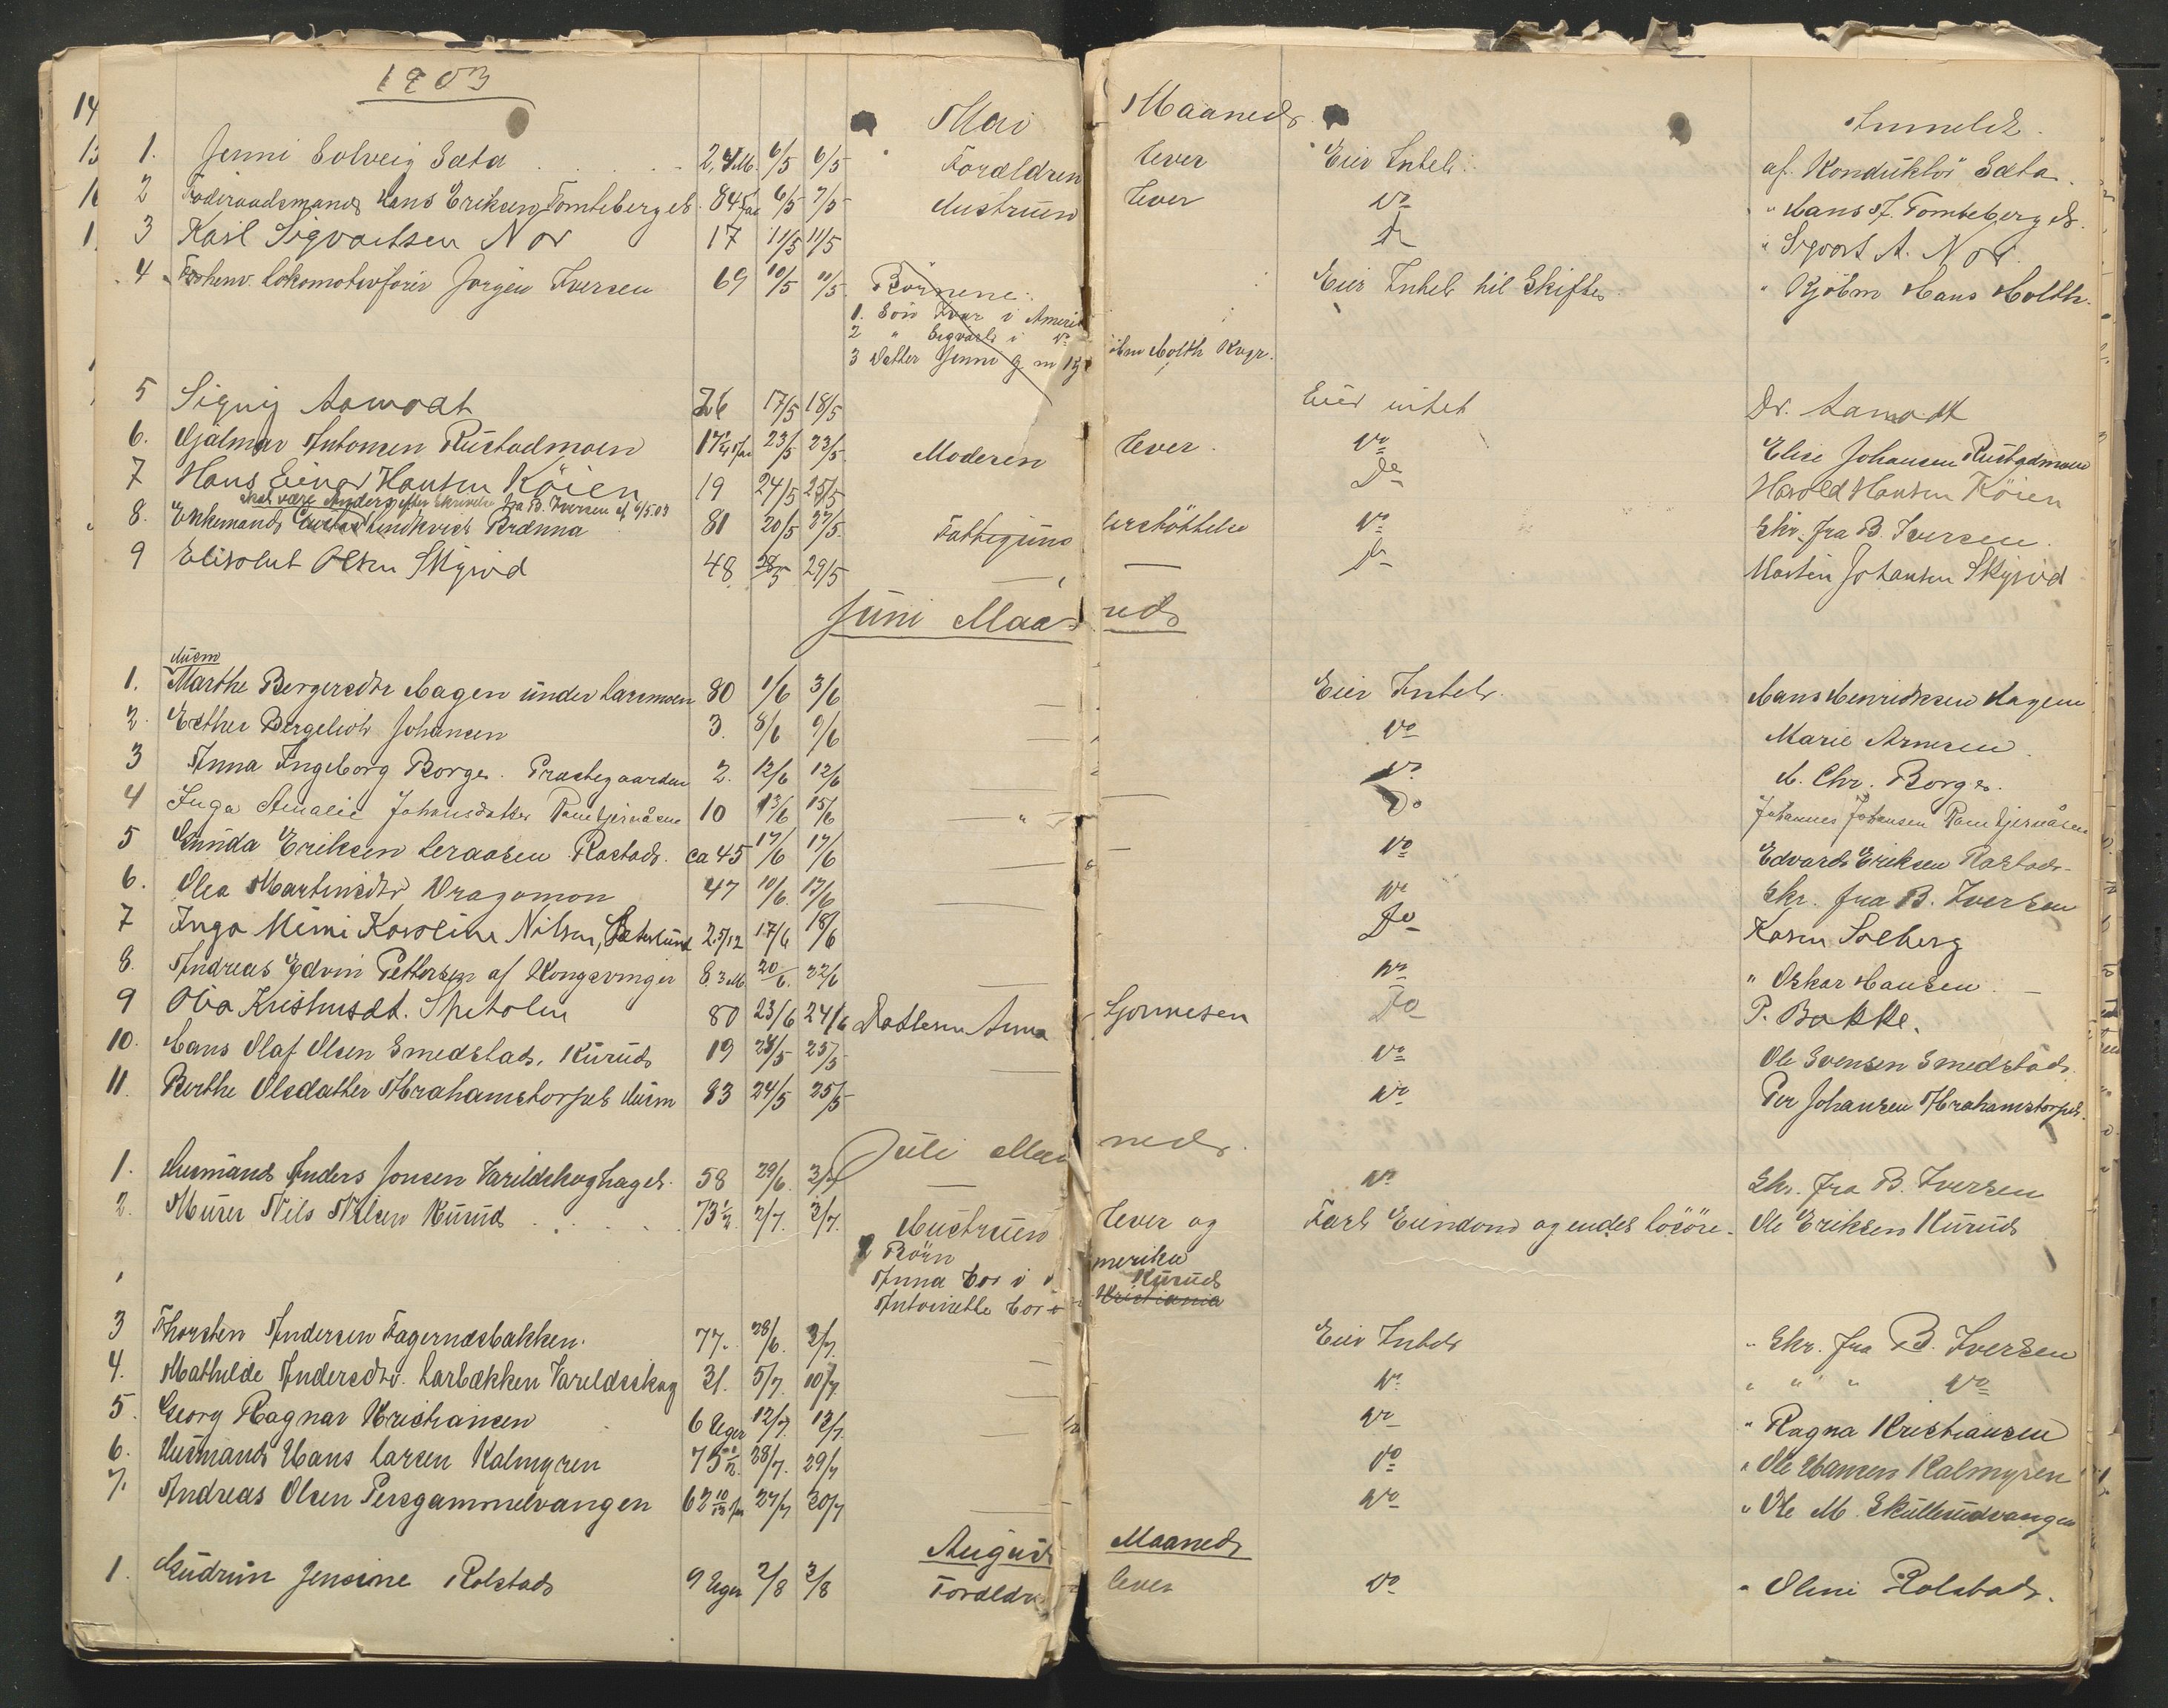 1903
Mai Maaned Anmeldt.
1. Jenni Solveig Sæta 2, 4 M. 6/5 6/5 Forældren lever Eier Intet. af Konduktör Sæta.
2 Föderaadsmand Hans Eriksen Tomteberget. 84 5/5 7/5 Hustruen lever Do " Hans J. Tomteberget.
3 Karl Sigvartsen Nor 17 11/5 11/5 Do " Sigvart A. Nor.
4 Forhenv. Lokomotivförer Jörgen Iversen 69 10/5 11/5 Börnene: Eier Intet til Skifte " Kjöbm Hans Molth.
1. Sön Ivar i Amerik
2 " Sigvart i Do
3 Datter Jenni g. m. Kjöbm Molth Kvgr.
5 Signy Aamodt 26 17/5 18/5 Eier intet Dr. Aamodt
6. Hjalmar Antonsen Rustadmoen 17 23/5 23/5 Moderen lever. Do Elise Johansen Rustadmoen
7 Hans Einar Hansen Köien 19 24/5 25/5 Do Harald Hansen Köien
skal være Anders efter Skrivelse fra B. Iversen af 6/5.03
8. Enkemand Gustav Lindkvist Brænna 81 20/5 27/5. Fattigunderstöttelse Do Skr. fra B. Iversen.
9 Elisabet Olsen Skyrud 48 28/5 29/5 — — Do Martin Johansen Skyrud
Juni Maaned
Husm
1. Marthe Bergersdtr Hagen under Larsmoen 80 1/6 3/6 — Eier Intet. Hans Henriksen Hagen
2. Esther Bergeliot Johansen 3. 8/6 9/6 — Do Marie Arnesen.
3 Anna Ingeborg Borge. Præstegaarden 2. 12/6 12/6 — Do A. Chr. Borge.
4 Inga Amalie Johansdatter Ramtjernåsen 10 13/6 15/6 — " — Do Johannes Johansen Ramtjernåsen
5 Gunda Eriksen Leraasen Rastad. ca 45 17/6 17/6 — — Do Edvard Eriksen Rastad.
6. Olea Martinsdtr Dragomon 47 10/6. 17/6 — Do Skr. fra B. Iversen
7 Inga Mimi Karoline Nilsen, Sæterlund 2.5/12 17/6 18/6 Do Karen Solberg
8. Andreas Edvin Pettersen af Kongsvinger 8. 3 M 20/6. 22/6 — Do " Oskar Hansen. —
9 Olia Kristiansdt. Spetalen 80 23/6 24/6 Datteren Anna Gjonnesen Do P. Bakke.
10. Hans Olaf Olsen Smedstad, Kurud 19 23/5 25/5 Do Ole Svensen Smedstad.
11. Berthe Olsdatter Abrahamstorpet Husm 83 24/5 25/5 — Do Per Johansen Abrahamstorpet.
Juli Maaned.
1. Husmand Anders Jonsen Varildskoghaget. 58 29/6. 2/7 — Do Skr. fra B. Iversen
2. Murer Nils Nilsen Kurud 73 1/2. 2/7. 3/7. Hustruen lever og Fast Eiendom og endel lösöre. Ole Eriksen Kurud
2 Börn
Anna bor i Amerika
Antoinette bor i Kristiania Kurud
3 Thorsten Andersen Fagernæsbakken. 77. 28/6. 3/7. Eier Intet " Skr. fra B. Iversen
4. Mathilde Andersdtr. Larbækken Varaldskog 31. 5/7. 10/7. — Do " " " Do
5. Georg Ragnar Kristiansen 6 Uger 12/7. 13/7. — Do " Ragna Kristiansen
6. Husmand Hans Larsen Kalmyren 75 28/7. 29/7 — Do " Ole Hansen Kalmyren
7. Andreas Olsen Persgammelvangen 62 10/12 27/7 30/7 — Do " Ole M. Skullerudvangen
August Maaned
1. Gudrun Jensine Rolstad 9 Uger 2/8 3/8 Forældre lever Do " Oline Rolstad.